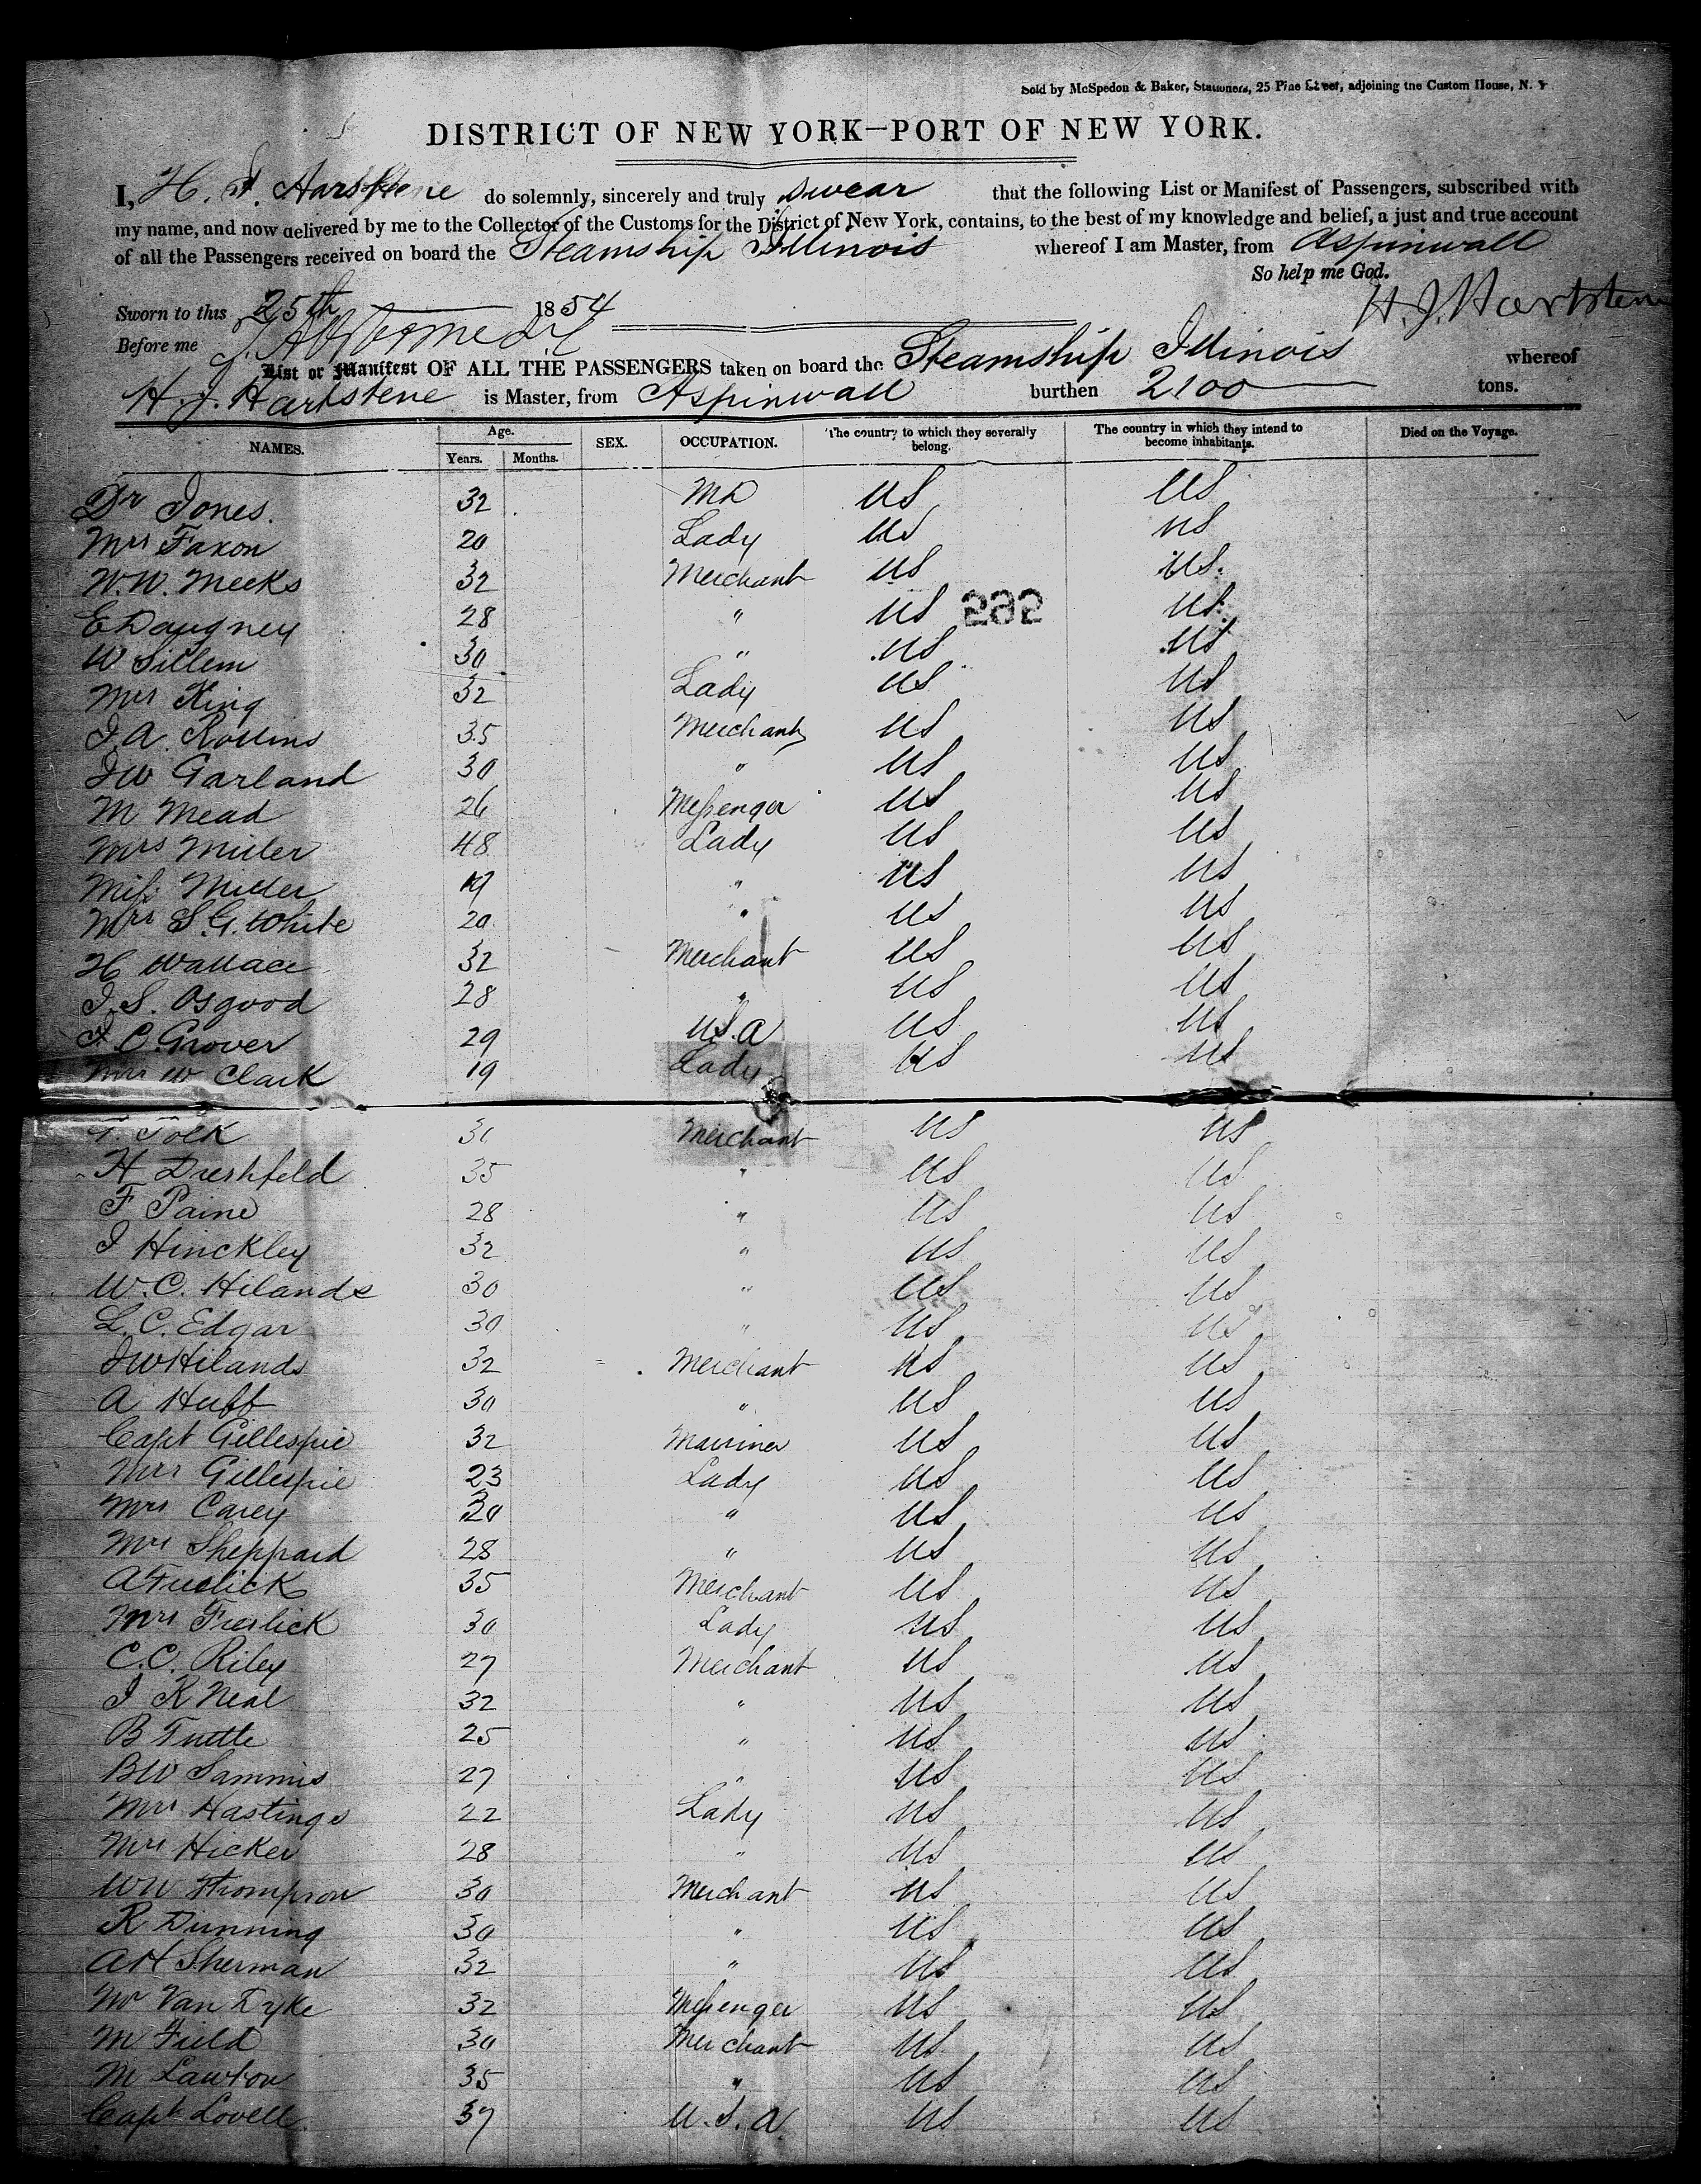 Sold by McSpedon & Baker, Stationers, 25 Pine Street, adjoining the Custom House, N. Y
DISTRICT OF NEW YORK—PORT OF NEW YORK.
I, H. J. Hartstene do solemnly, sincerely and truly swear that the following List or Manifest of Passengers, subscribed with
my name, and now delivered by me to the Collector of the Customs for the District of New York, contains, to the best of my knowledge and belief, a just and true account
of all the Passengers received on board the Steamship Illinois whereof I am Master, from Aspinwall
So help me God.
Sworn to this 25th 1854 H. J. Hartstene
Before me
List or Manifest OF ALL THE PASSENGERS taken on board the Steamship Illinois whereof
H. J. Hartstene is Master, from Aspinwall burthen 2100 tons.
NAMES. Age. Years. Months. SEX. OCCUPATION. The country to which they severally belong. The country in which they intend to become inhabitants. Died on the Voyage.
Dr Jones. 32 MD US US
Mrs Faxon 20 Lady US US
W.W. Meeks 32 Merchant US US.
E Daugney 28 " US 292 US
W Sillem 30 " US US
Mrs King 32 Lady US US
J.A. Rollins 35 Merchant US US
JW Garland 30 " US US
M Mead 26 Messenger US US
Mrs Miller 48 Lady US US
Miss Miller 19 " US US
Mrs S.G. White 20 " US US
H Wallace 32 Merchant US US
J.S. Osgood 28 " US US
J.C. Grover 29 U.S.A US US
Mrs W Clark 19 Lady US US
Tolk 31 Merchant US US
H Dreshfeld 35 " US US
F Paine 28 " US US
J Hinckley 32 " US US
W.C. Hilands 30 " US US
L.C. Edgar 30 " US US
JW Hilands 32 Merchant US US
A Huff 30 " US US
Capt Gillespie 32 Mariner US US
Mrs Gillespie 23 Lady US US
Mrs Carey 30 " US US
Mrs Sheppard 28 " US US
A Frerlick 35 Merchant US US
Mrs Frerlick 30 Lady US US
C.C. Riley 27 Merchant US US
J R Neal 32 " US US
B Tuttle 25 " US US
BW Sammis 27 " US US
Mrs Hastings 22 Lady US US
Mrs Hicker 28 " US US
WW Thompson 30 Merchant US US
R Dunning 30 " US US
AH Sherman 32 " US US
Mr Van Dyke 32 Messenger US US
M Field 30 Merchant US US
M Lawton 35 " US US
Capt Lovell 37 U.S.A. US US